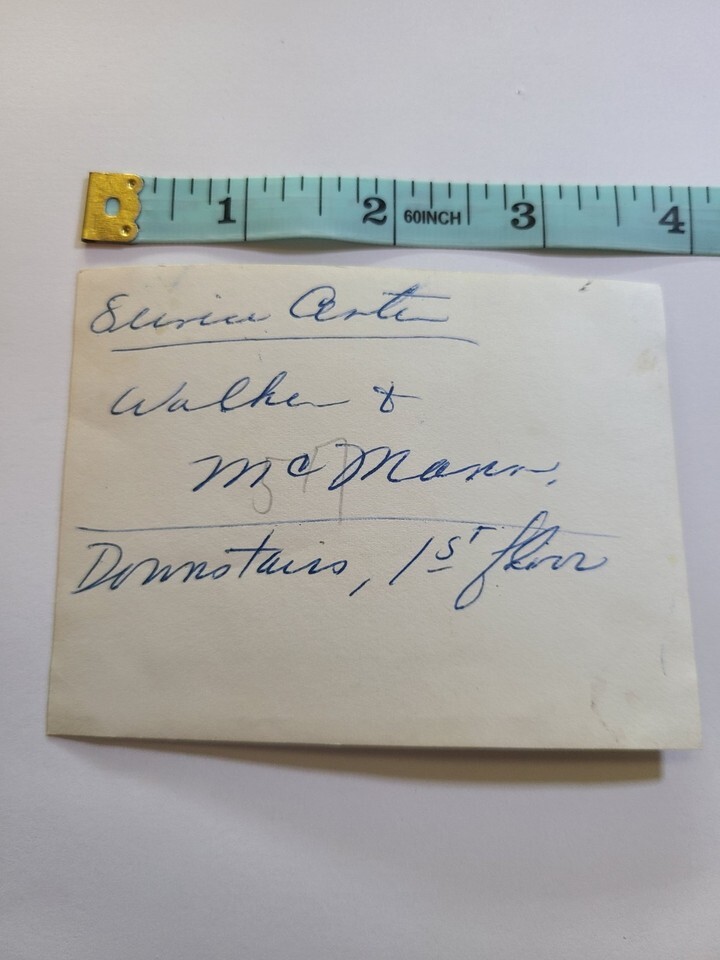 1 2 60INCH 3 4
Service Center
Walker &
McMann.
547
Downstairs, 1st floor